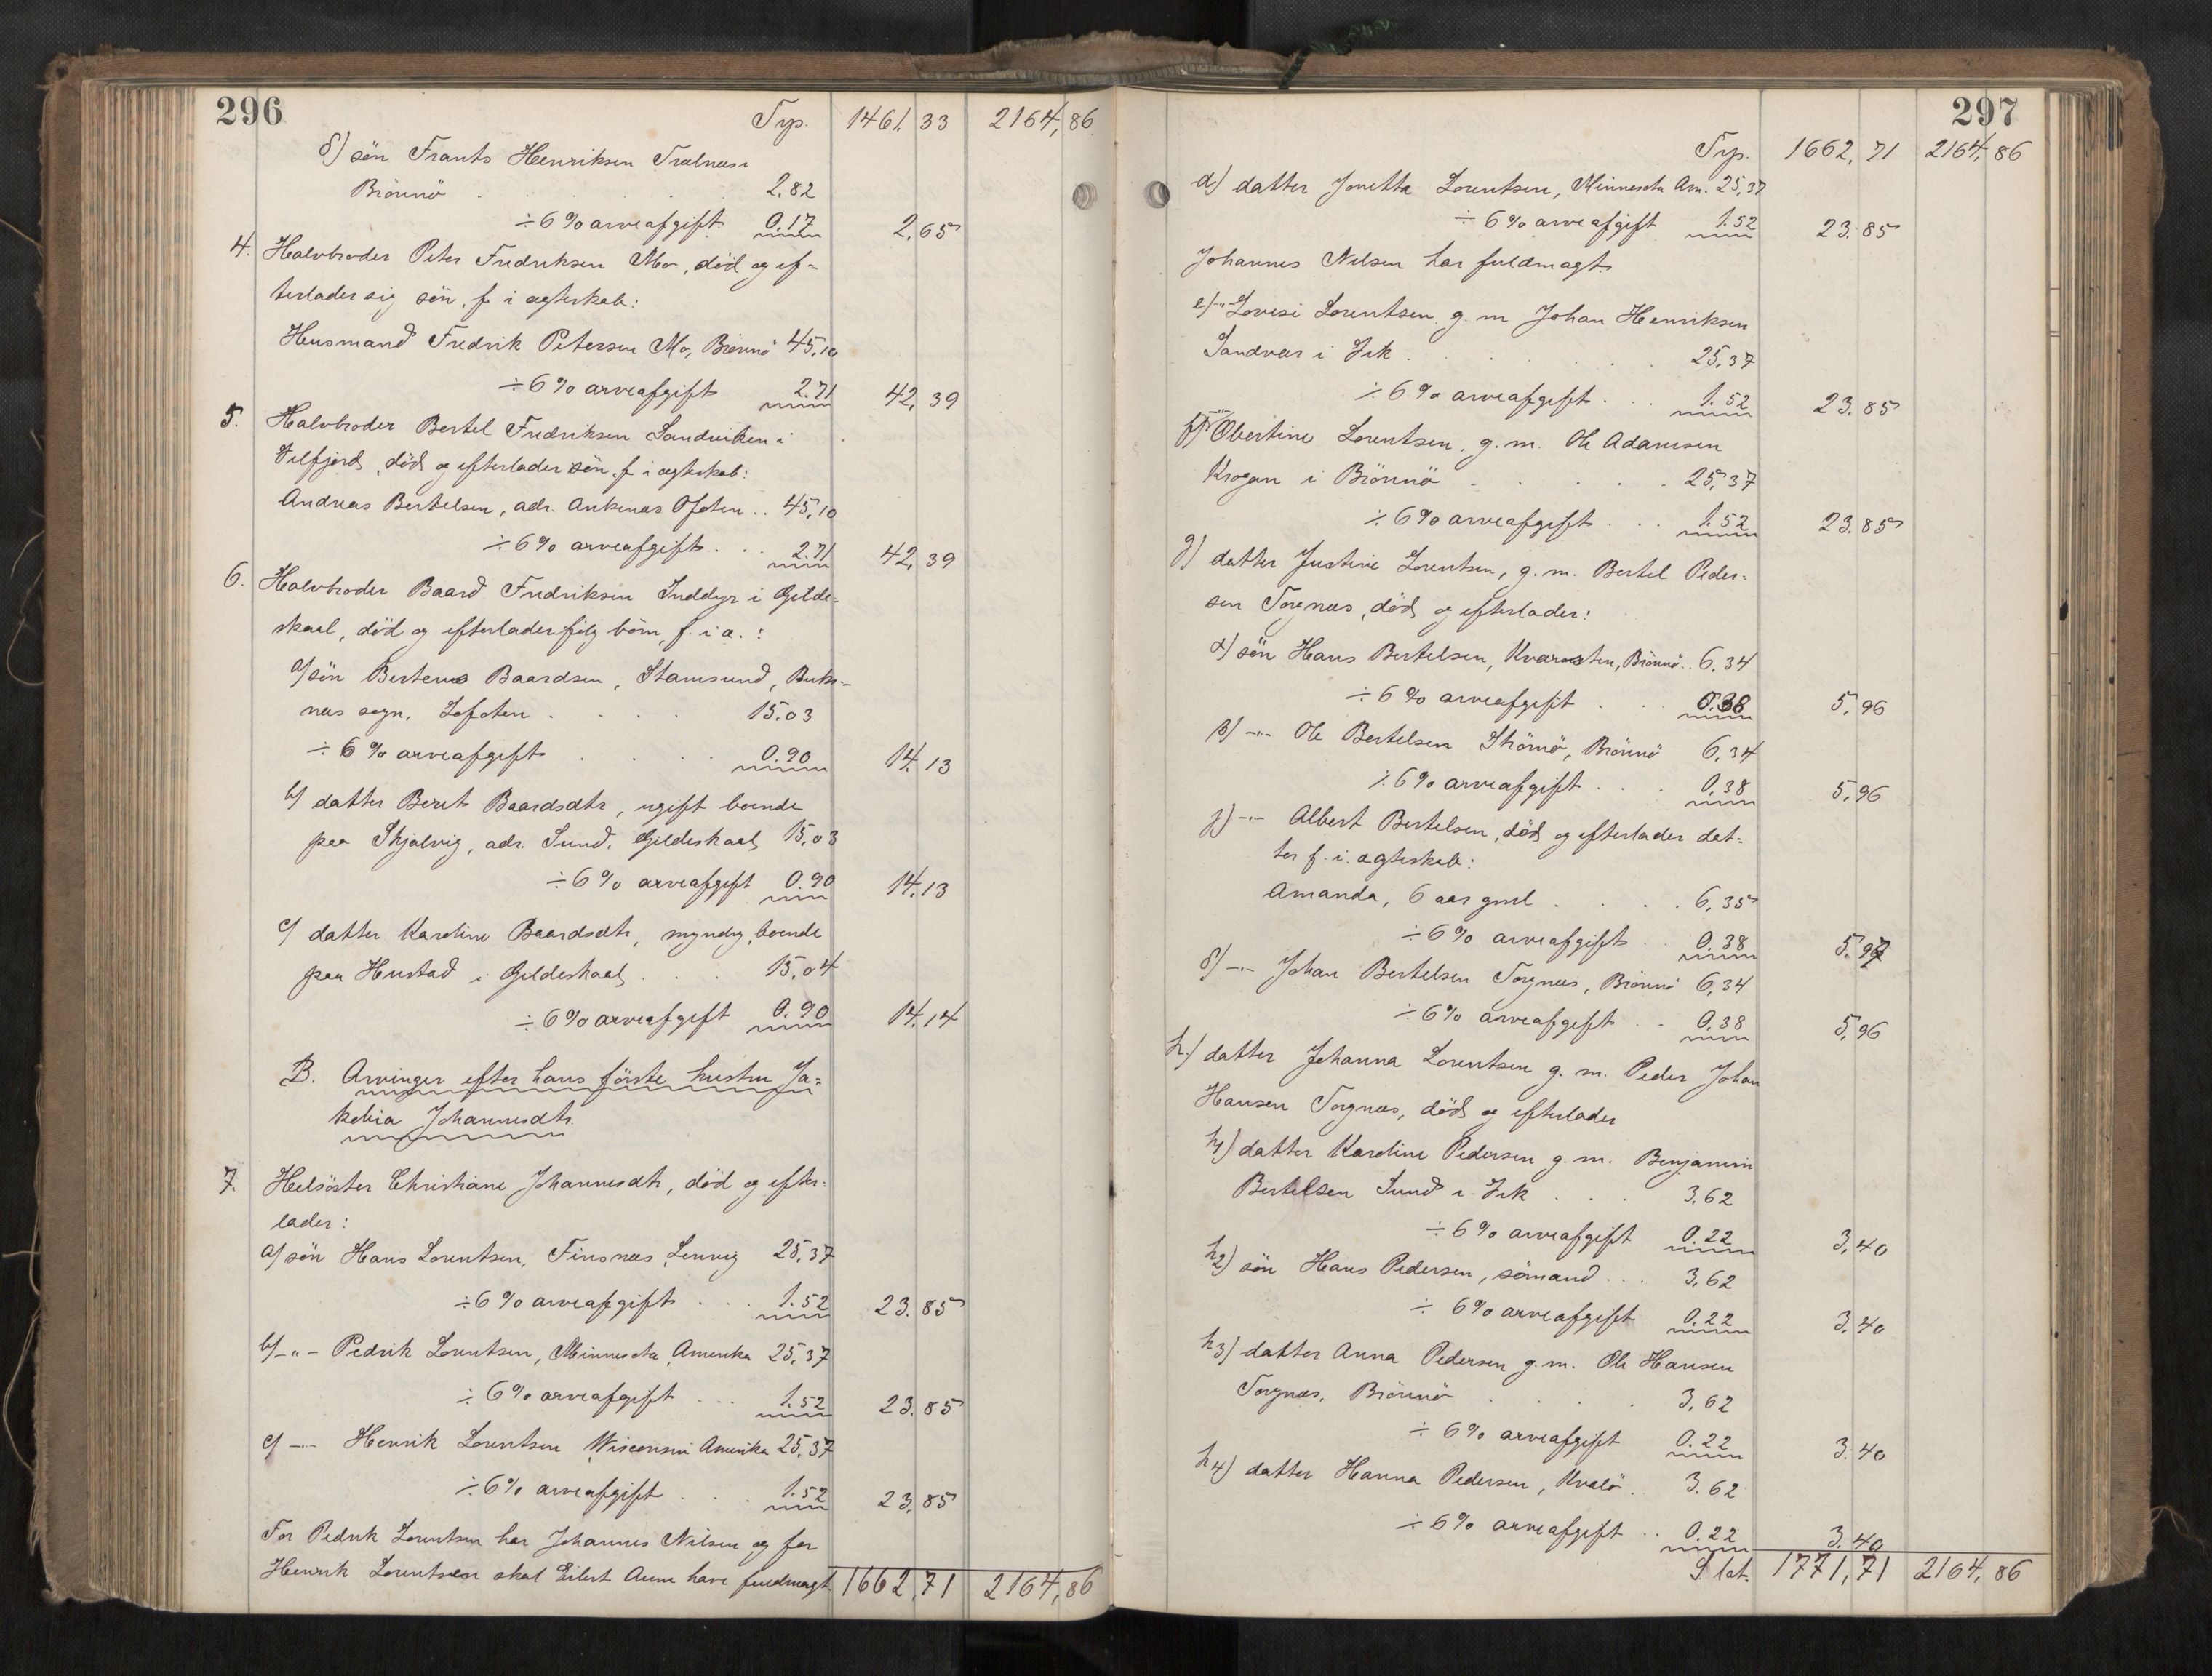 296
Trp. 1461,33 2164,86
δ) søn Frants Henriksen Trælnes i
Brønnø . 2,82
÷ 6% arveafgift 0.17 2,65
4. Halvbroder Peter Fredriksen Mo, død og ef=
terlader sig søn, f. i ægteskab:
Husmand Fredrik Petersen Mo, Brønnø 45,10
÷ 6% arveafgift 2.71 42,39
5. Halvbroder Bertel Fredriksen Sandviken i
Velfjord, død og efterlader søn f. i ægteskab:
Andreas Bertelsen, adr. Ankenes Ofoten .. 45,10
÷ 6% arveafgift . .. 2.71 42,39
6. Halvbroder Baard Fredriksen Inddyr i Gilde=
skaal, død og efterlader følg børn, f. i æ. :
a) søn Berteus Baardsen, Stamsund, Buks-
nes sogn, Lofoten . . . . 15.03
÷ 6% arveafgift . . . . 0.90 14.13
b) datter Berit Baardsdtr, ugift boende
paa Skjælvig, adr. Sund, Gildeskaal 15,03
÷ 6% arveafgift 0.90 14.13
c) datter Karoline Baardsdtr, myndig, boende
paa Hustad i Gildeskaal . . . 15,04
÷ 6% arveafgift 0.90 14.14
B. Arvinger efter hans første hustru Ja=
kobia Johannesdtr.
7. Helsøster Christiane Johannesdtr, død og efter=
lader:
a) søn Hans Lorentsen, Finsnes, Lenvig 25,37
÷ 6% arveafgift . . . 1.52 23.85
b) -"- Pedrik Lorentsen, Minnesota, Amerika 25,37
÷ 6% arveafgift ... 1.52 23.85
c) -"- Henrik Lorentsen, Wisconsin Amerika 25,37
÷ 6% arveafgift . . . 1.52 23,85
For Pedrik Lorentsen har Johannes Nilsen og for
Henrik Lorentsen skal Eilert Aune have fuldmagt. 1662,71 2164,86
297
Trp. 1662,71 2164,86
d) datter Jonetta Lorentsen, Minnesota Am. 25,37
÷ 6% arveafgift 1.52 23.85
Johannes Nilsen har fuldmagt
e) -"- Lovise Lorentsen, g. m. Johan Henriksen
Sandvær i Vik . . . . . 25,37
÷ 6% arveafgift . .. 1.52 23.85
f) -"- Obertine Lorentsen, g. m. Ole Adamsen
Krogan i Brønnø . . . . . 25,37
÷ 6% arveafgift . .. 1.52 23.85
g) datter Justine Lorentsen, g. m. Bertel Peder=
sen Torgnes, død og efterlader:
α) søn Hans Bertelsen, Brønnø.. 6,34
÷ 6% arveafgift . .. 0.38 5,96
β) -"- Ole Bertelsen Strømø, Brønnø 6,34
÷ 6% arveafgift . . . 0,38 5,96
γ) -"- Albert Bertelsen, død og efterlader dat=
ter f. i. ægteskab:
Amanda, 6 aar gml . . . . 6,35
÷ 6% arveafgift .. 0.38 5.97
δ) -"- Johan Bertelsen Torgnes, Brønnø 6,34
÷ 6% arveafgift .. 0,38 5,96
h.) datter Johanna Lorentsen g. m. Peder Johan
Hansen Torgnes, død og efterlader
h1) datter Karoline Pedersen g. m. Benjamin
Bertelsen Sund i Vik . . . 3.62
÷ 6% arveafgift 0.22 3,40
h2) søn Hans Pedersen, sømand ... 3,62
÷ 6% arveafgift 0.22 3.40
h3) datter Anna Pedersen g. m. Ole Hansen
Torgnes, Brønnø . . . . 3,62
÷ 6% arveafgift 0.22 3.40
h4) datter Hanna Pedersen, Kvalø . 3.62
÷ 6% arveafgift .. 0.22 3.40
S lat. 1771,71 2164,86